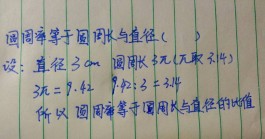 圆周率等于圆周长与直径(    )
设: 直径3cm 圆周长3π(π取3.14)
3π=9.42 9.42:3=3.14
所以圆周率等于圆周长与直径的比值